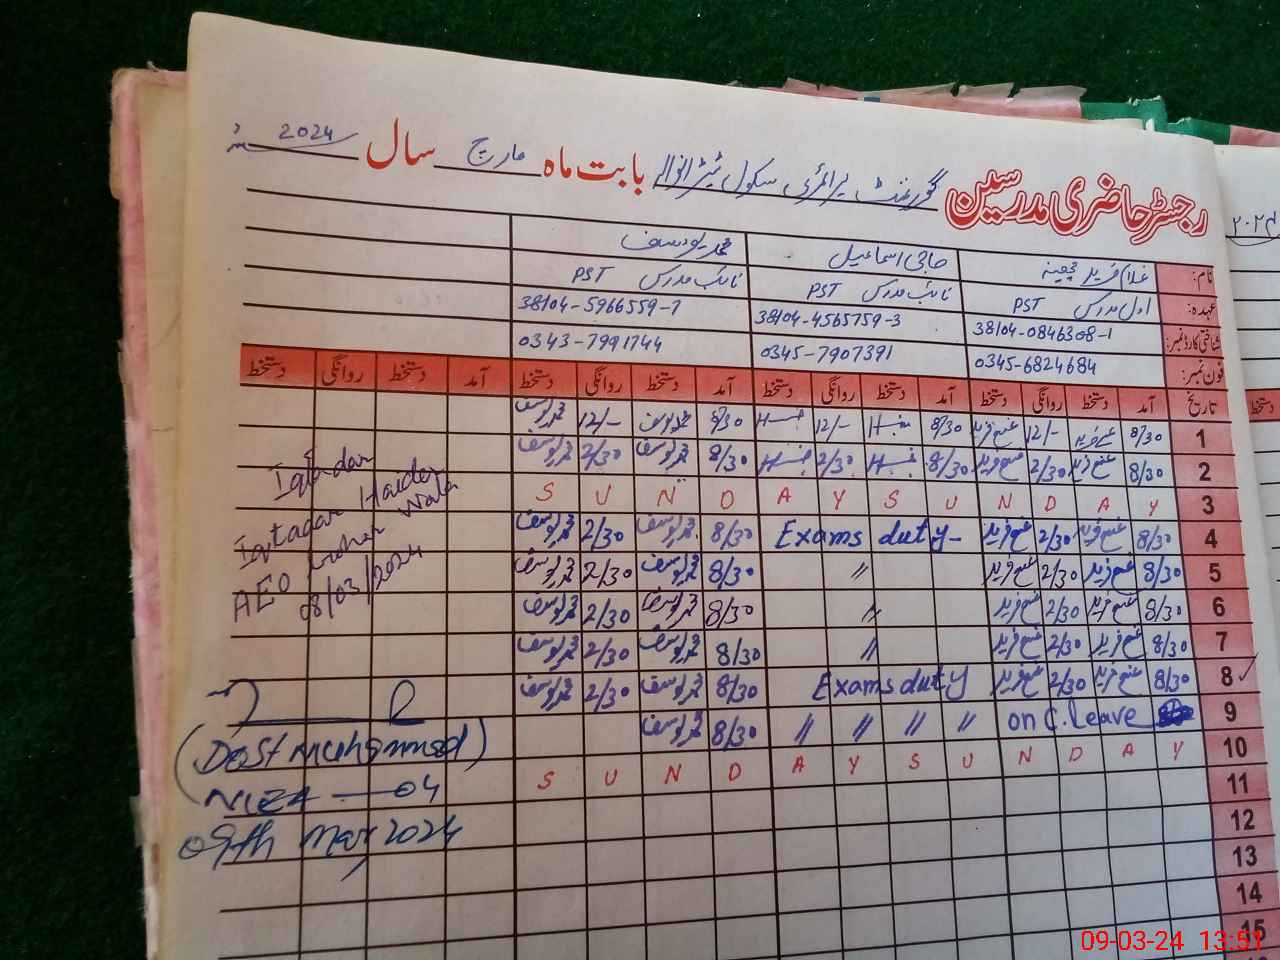 رجسٹر حاضری مدرسین گورنمنٹ پرائمری سکول بابت ماہ مارچ سال 2024ء
۲۰۲۴
نام: غلام فرید حاجی اسماعیل محمد یوسف
عہدہ: اول مدرس PST نائب مدرس PST نائب مدرس PST
شناختی کارڈ نمبر: 38104-0846308-1 38104-4565759-3 38104-5966559-7
فون نمبر: 0345-6824684 0345-7907391 0343-7991744
تاریخ آمد دستخط روانگی دستخط آمد دستخط روانگی دستخط آمد دستخط روانگی دستخط آمد دستخط روانگی دستخط
دستخط
1 8/30 غ فرید 12/- غ فرید 8/30 12/- 8/30 محمد یوسف 12/- محمد یوسف
2 8/30 غ فرید 2/30 غ فرید 8/30 2/30 8/30 محمد یوسف 2/30 محمد یوسف
3 S U N D A Y S U N D A Y
4 8/30 غ فرید 2/30 غ فرید Exams duty- 8/30 محمد یوسف 2/30 محمد یوسف
5 8/30 غ فرید 2/30 غ فرید " 8/30 محمد یوسف 2/30 محمد یوسف
6 8/30 غ فرید 2/30 غ فرید " 8/30 محمد یوسف 2/30 محمد یوسف
7 8/30 غ فرید 2/30 غ فرید " 8/30 محمد یوسف 2/30 محمد یوسف
8 8/30 غ فرید 2/30 غ فرید Exams duty 8/30 محمد یوسف 2/30 محمد یوسف
9 on C. Leave " " " " 8/30 محمد یوسف
10 S U N D A Y S U N D A Y
11
12
13
14
15
Iqtadar
Iqtadar Haider
AEO Wala
08/03/2024
(Dost Muhammad)
04
09th Mar, 2024
09-03-24 13:51